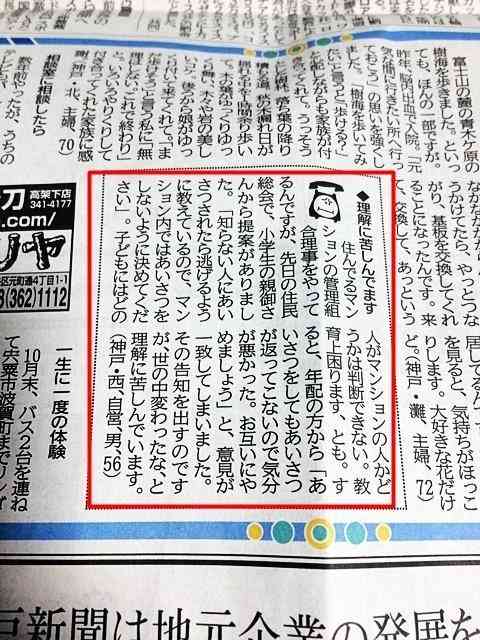 富士山の麓の青木ケ原の
樹海を歩きました。といっ
ても、ほんの一部ですが。
昨年、脳内出血で入院。「元
気な間に行きたい所へ行っ
ておこう」の思いを強くし
ました。「樹海を歩いてみ
と言うと「歩ける?」
いながらも家族が付
ってくれて。うっそう
樹林、落ち葉の降り
道、木の漏れ日が
揺れる中を2時間余り歩い
て。木の葉がゆっくりゆっ
くり舞い、木々と岩の美し
後から娘がゆっ
ついて来てくれて。「ま
歩ける」と言う私に「無
ないで。これで終わり」
と。いろいろやりくりして
付き合ってくれた家族に感
謝。(神戸・北、主婦、70)
相談室に相談したら
うちの
うかけてたら、やっとつな
がり、基板を交換してくれ
ることになったんです。来
て、交換して、あっという
◆理解に苦しんでます
住んでるマン
ションの管理組
合理事をやって
るんですが、先日の住民
総会で、小学生の親御さ
んから提案がありまし
た。「知らない人にあい
さつされたら逃げるよう
に教えているので、マン
ション内ではあいさつを
しないように決めてくだ
さい」。子どもにはどの
人がマンションの人かど
うかは判断できない。教
育上困ります、とも。す
ると、年配の方から「あ
いさつをしてもあいさつ
が返ってこないので気分
が悪かった。お互いにや
めましょう」と、意見が
一致してしまいました。
その告知を出すのです
が、世の中変わったな、と
理解に苦しんでいます。
(神戸・西、自営、男、56)
を見ると、気持ちがほっこ
りします。大好きな花だけ
ど。(神戸・灘、主婦、72)
刀
高架下店
341-4177
.com/
区元町通4丁目1-1
(362)1112
一生に一度の体験
10月末、バス2台を連ね
て宍粟市波賀町まで
戸新聞は地元企業の発展を